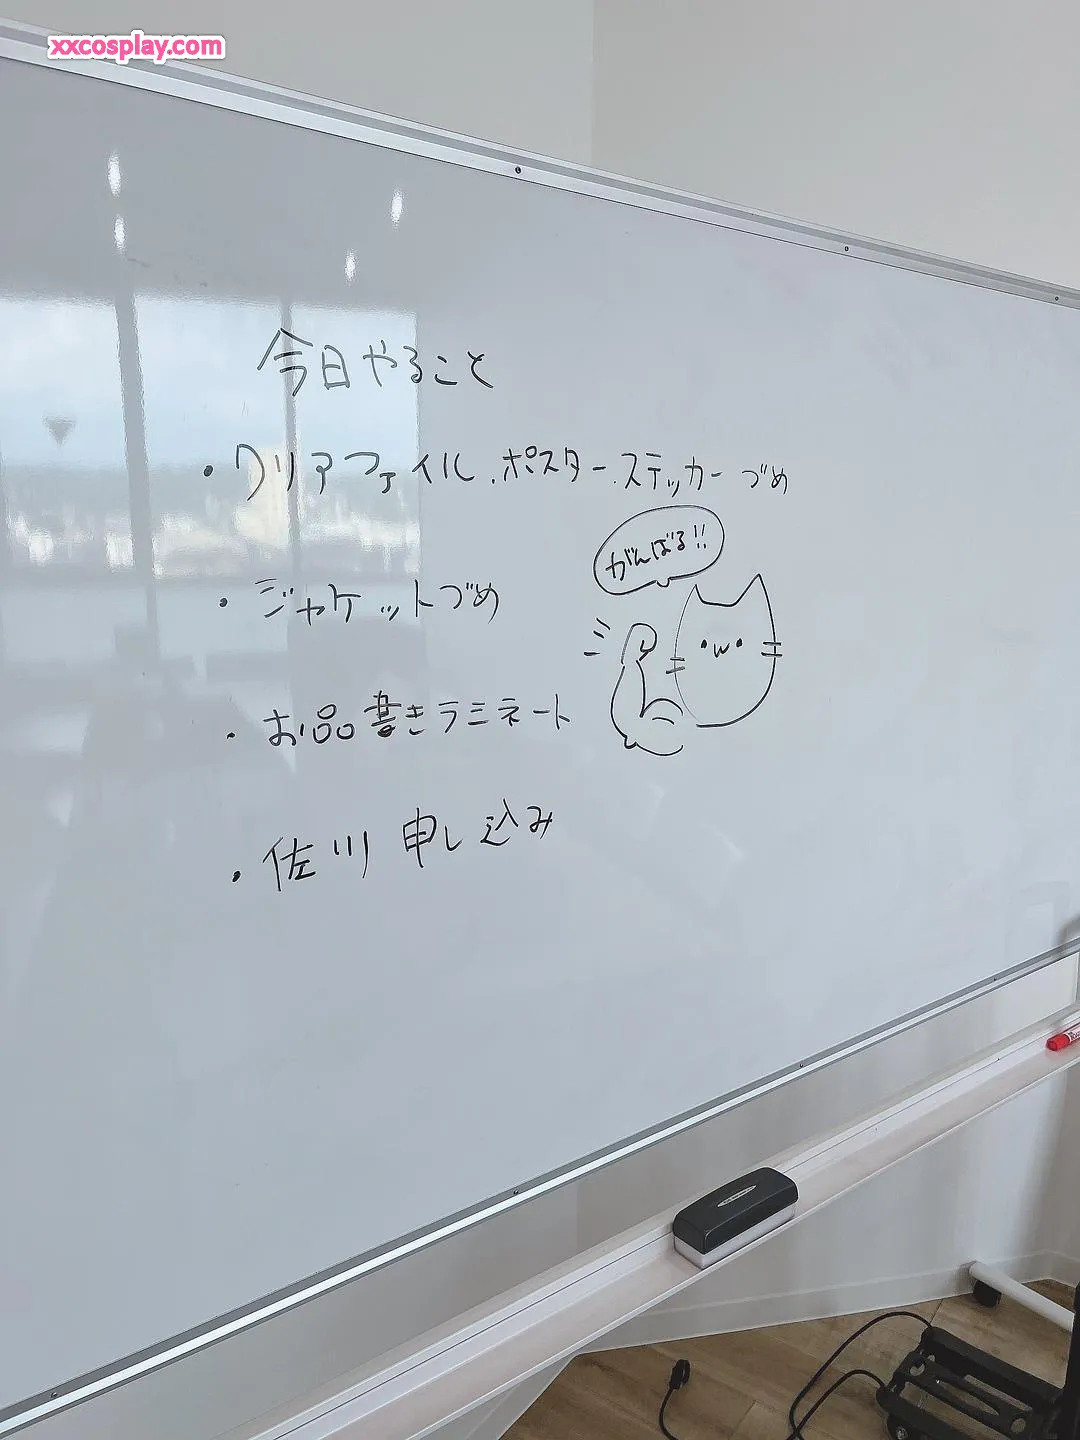 xxcosplay.com
今日やること
・クリアファイル.ポスター.ステッカーづめ
がんばる!!
・ジャケットづめ
・お品書きラミネート
・佐川 申し込み